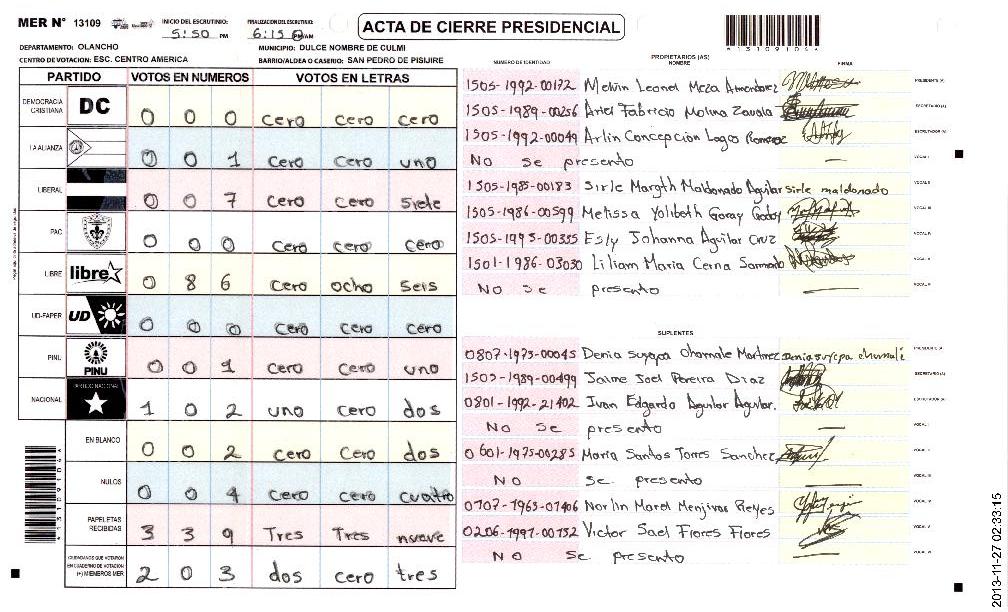 MER N° 13109
INICIO DEL ESCRUTINIO: 5:50 PM
FINALIZACION DEL ESCRUTINIO: 6:15 PM/AM
ACTA DE CIERRE PRESIDENCIAL
*1310914*
DEPARTAMENTO: OLANCHO
MUNICIPIO: DULCE NOMBRE DE CULMI
CENTRO DE VOTACION: ESC. CENTRO AMERICA
BARRIO/ALDEA O CASERIO: SAN PEDRO DE PISIJIRE
PARTIDO VOTOS EN NUMEROS VOTOS EN LETRAS
DEMOCRACIA CRISTIANA DC 0 0 0 cero cero cero
LA ALIANZA 0 0 1 cero cero uno
LIBERAL 0 0 7 cero cero siete
PAC 0 0 0 cero cero cero
LIBRE libre 0 8 6 cero ocho seis
UD-FAPER UD 0 0 0 cero cero cero
PINU PINU 0 0 1 cero cero uno
NACIONAL PARTIDO NACIONAL 1 0 2 uno cero dos
EN BLANCO 0 0 2 cero cero dos
NULOS 0 0 4 cero cero cuatro
PAPELETAS RECIBIDAS 3 3 9 Tres Tres nueve
CIUDADANOS QUE VOTARON EN CUADERNO DE VOTACION (+) MIEMBROS MER 2 0 3 dos cero tres
NUMERO DE IDENTIDAD PROPIETARIOS (AS) NOMBRE FIRMA
1505-1992-00172 Melvin Leonel Meza PRESIDENTE (A)
1505-1989-00256 Ariel Fabricio Molina Zavala SECRETARIO (A)
1505-1992-00049 Arlin Concepcion Lagos ESCRUTADOR (A)
No se presento — VOCAL I
1505-1985-00183 Sirle Margth Maldonado Aguilar sirle maldonado VOCAL II
1505-1986-00599 Melissa Yolibeth Godoy VOCAL III
1505-1995-00355 Esly Johanna Aguilar Cruz VOCAL IV
1501-1986-03030 Liliam Maria Cerna Sarmiento VOCAL V
No Se presento VOCAL VI
SUPLENTES
0807-1975-00045 Denia Martinez PRESIDENTE (A)
1505-1989-00499 Jaime Joel Pereira Diaz SECRETARIO (A)
0801-1992-21402 Ivan Edgardo Aguilar Aguilar. ESCRUTADOR (A)
No Se presento — VOCAL I
0601-1975-00285 Maria Santos Torres Sanchez VOCAL II
No se presento — VOCAL III
0707-1963-01406 Norlin Marel Menjivar Reyes VOCAL IV
0206-1997-00752 Victor Sael Flores Flores VOCAL V
No Se presento — VOCAL VI
2013-11-27 02:33:15